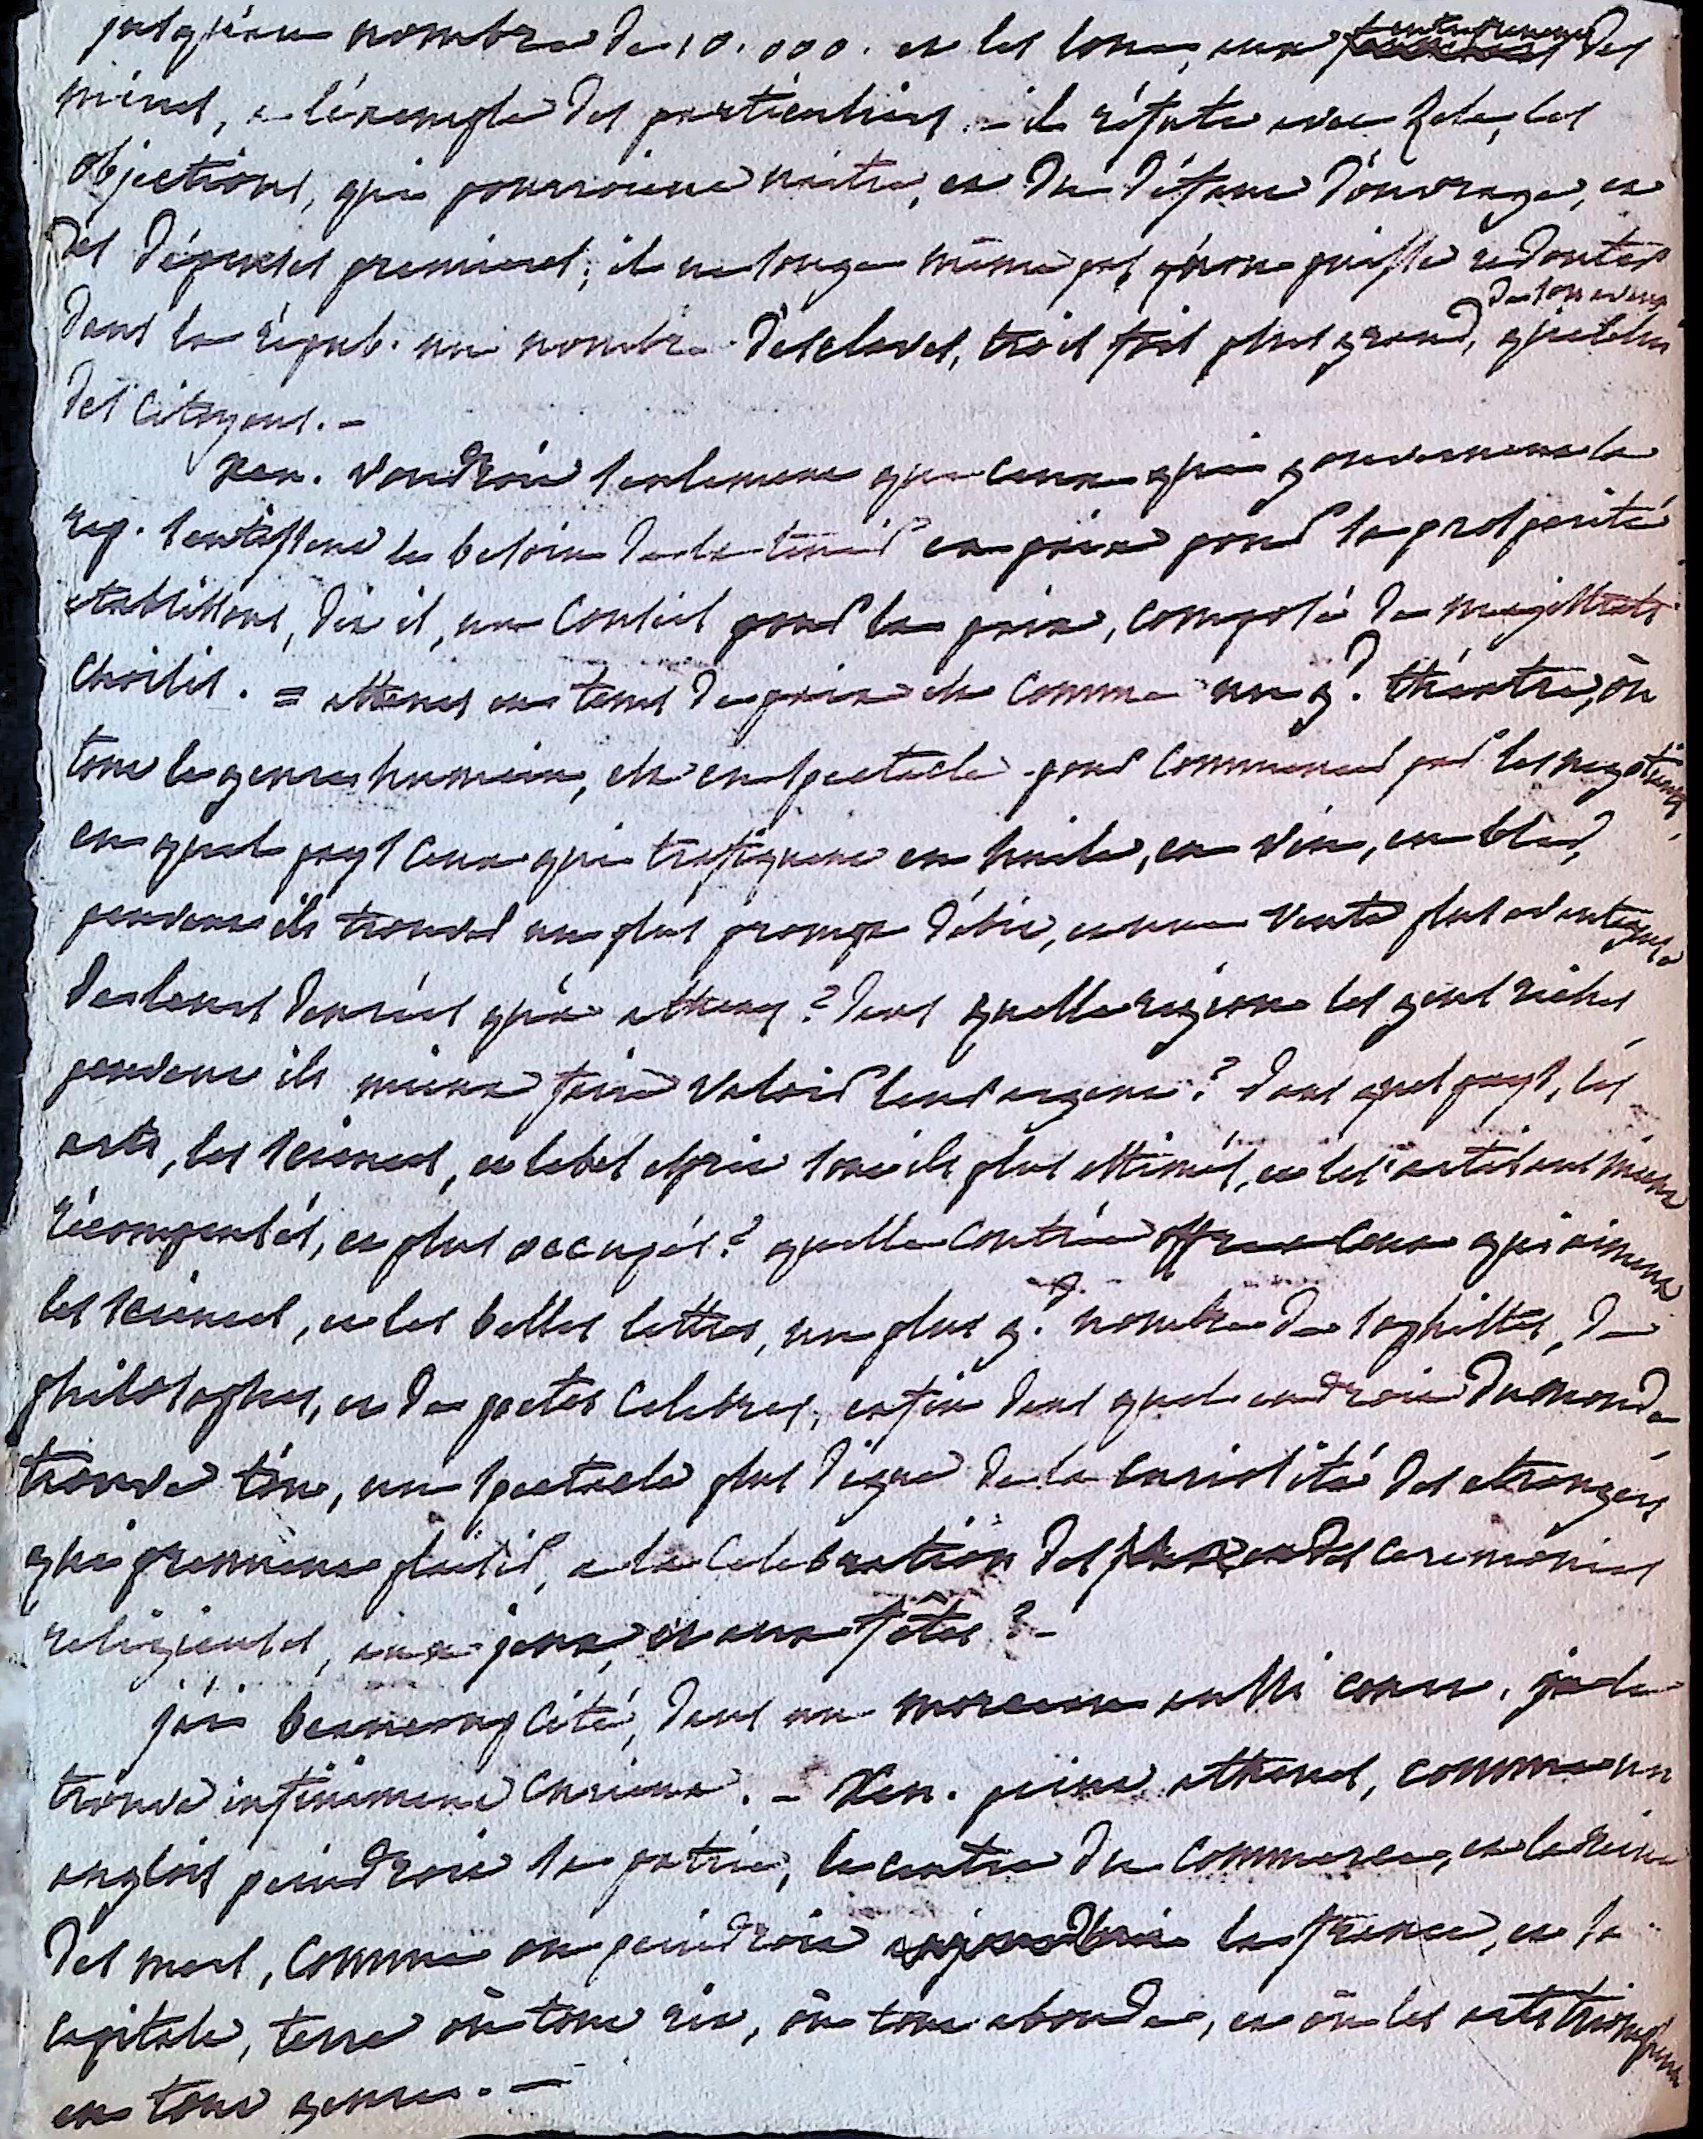 jusqu'à un nombre de 10.000. et les loue, aux entrepreneurs des
mines, a l'éxemple des particuliers. - il réfute avec zele, les
objections, qui pourroient naitre, et du défaut d'ouvrage, et
des dépenses premieres; il ne songe même pas qu'on puisse redouter
dans la répub. un nombre d'esclaves, trois fois plus grand, de son aveu, que celui
des citoyens. -
Xen. voudroit seulement que ceux qui gouvernent la
rep. sentissent le besoin de la tenir en paix pour sa prosperité
établissons, dit il, un Conseil pour la paix, composé de magistrats
choisis. = athenes en tems de paix est comme un gd. théatre, où
tout le genre humain, est en spectacle. pour commencer par les negotians,
en quel pays ceux qui trafiquent en huile, en vin, en bled,
peuvent ils trouver un plus prompt débit, et une vente plus avantageuse
de leurs denrées qu'à athenes? dans quelle region les gens riches
peuvent ils mieux faire valoir leur argent? dans quel pays, les
arts, les sciences, et le bel esprit sont ils plus estimés, et les artisans mieux
récompensés, et plus occupés? quelle contrée offre a ceux qui aiment
les sciences, et les belles lettres, un plus gd. nombre de sophistes, de
philosophes, et de poetes celebres, enfin dans quel endroit du monde
trouve t'on, un spectacle plus digne de la curiosité des etrangers
qui prennent plaisir, a la celebration des ceremonies
religieuses, aux jeux, et aux fêtes? -
j'ai beaucoup cité, dans un morceau aussi court, je le
trouve infiniment curieux. - Xen. peint athenes, comme un
anglois peindroit sa patrie, le centre du commerce, et la reine
des mers, comme on peindroit aujourdhui la france, et sa
capitale, terre où tout rit, où tout abonde, et où les arts triomphent
en tout genre. -